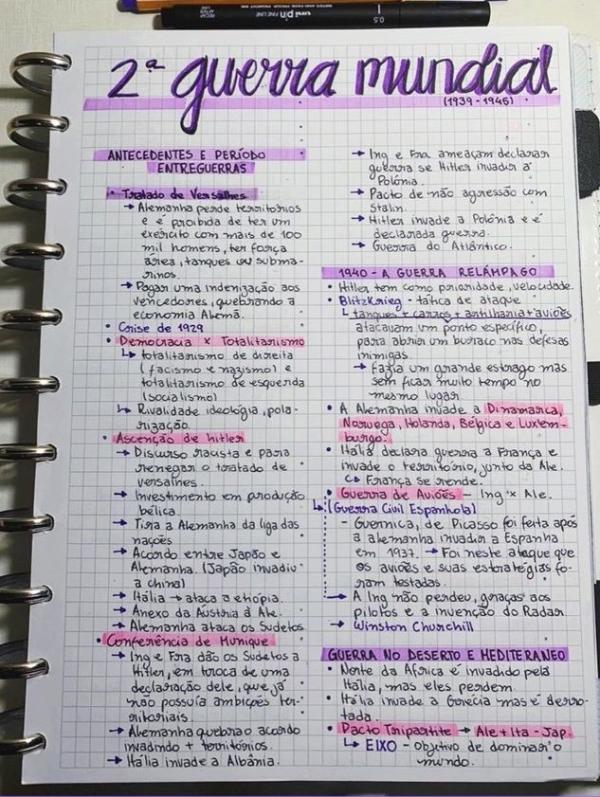 uni pin FINE LINE
0.5
2ª guerra mundial
(1939-1945)
ANTECEDENTES E PERÍODO
ENTREGUERRAS
• Tratado de Versalhes
→ Alemanha perde territórios
e é proibida de ter um
exército com mais de 100
mil homens, ter força
aérea, tanques ou subma-
rinos.
→ Pagar uma indenização aos
vencedores, quebrando a
economia Alemã.
• Crise de 1929
• Democracia x Totalitarismo
↳ totalitarismo de direita
(facismo e nazismo) e
totalitarismo de esquerda
(socialismo)
↳ Rivalidade ideológia, pola-
rização.
• Ascenção de hitler
→ Discurso racista e para
renegar o tratado de
versalhes.
→ Investimento em produção
bélica.
→ Tira a Alemanha da liga das
nações
→ Acordo entre Japão e
Alemanha. (Japão invadiu
a china)
→ Itália → ataca a etiópia.
→ Anexo da Áustria à Ale.
→ Alemanha ataca os Sudetos
• Conferência de Munique
→ Ing e Fra dão os Sudetos a
Hitler, em troca de uma
declaração dele, que já
não possuía ambições ter-
ritoriais.
→ Alemanha quebra o acordo
invadindo + territórios.
→ Itália invade a Albânia.
→ Ing e Fra ameaçam declarar
guerra se Hitler invadir a
Polônia.
→ Pacto de não agressão com
Stalin.
→ Hitler invade a Polônia e é
declarada guerra.
→ Guerra do Atlântico.
1940 - A GUERRA RELÂMPAGO
• Hitler tem como prioridade, velocidade.
• Blitzkrieg - tática de ataque
↳ tanques + carros + antilharia + aviões
atacavam um ponto específico,
para abrir um buraco nas defesas
inimigas.
→ Fazia um grande estrago mas
sem ficar muito tempo no
mesmo lugar.
• A Alemanha invade a Dinamarca,
Noruega, Holanda, Bélgica e Luxem-
burgo.
• Itália declara guerra a França e
invade o território, junto da Ale.
↳ França se rende.
• Guerra de Aviões - Ing x Ale.
↳ (Guerra Civil Espanhola)
- Guernica, de Picasso foi feita após
a alemanha invadir a Espanha
em 1937. → Foi neste ataque que
os aviões e suas estratégias fo-
ram testadas.
→ A Ing não perdeu, graças aos
pilotos e a invenção do Radar.
→ Winston Churchill
GUERRA NO DESERTO E MEDITERANEO
• Norte da África é invadido pela
Itália, mas eles perdem.
• Itália invade a Grécia mas é derro-
tada.
• Pacto Tripartite → Ale + Ita - Jap.
↳ EIXO - Objetivo de dominar o
mundo.